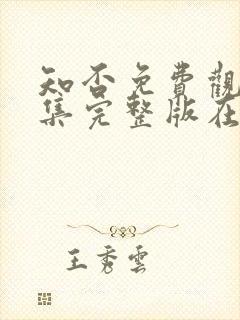 知否免費觀
集完整版在
王秀雲